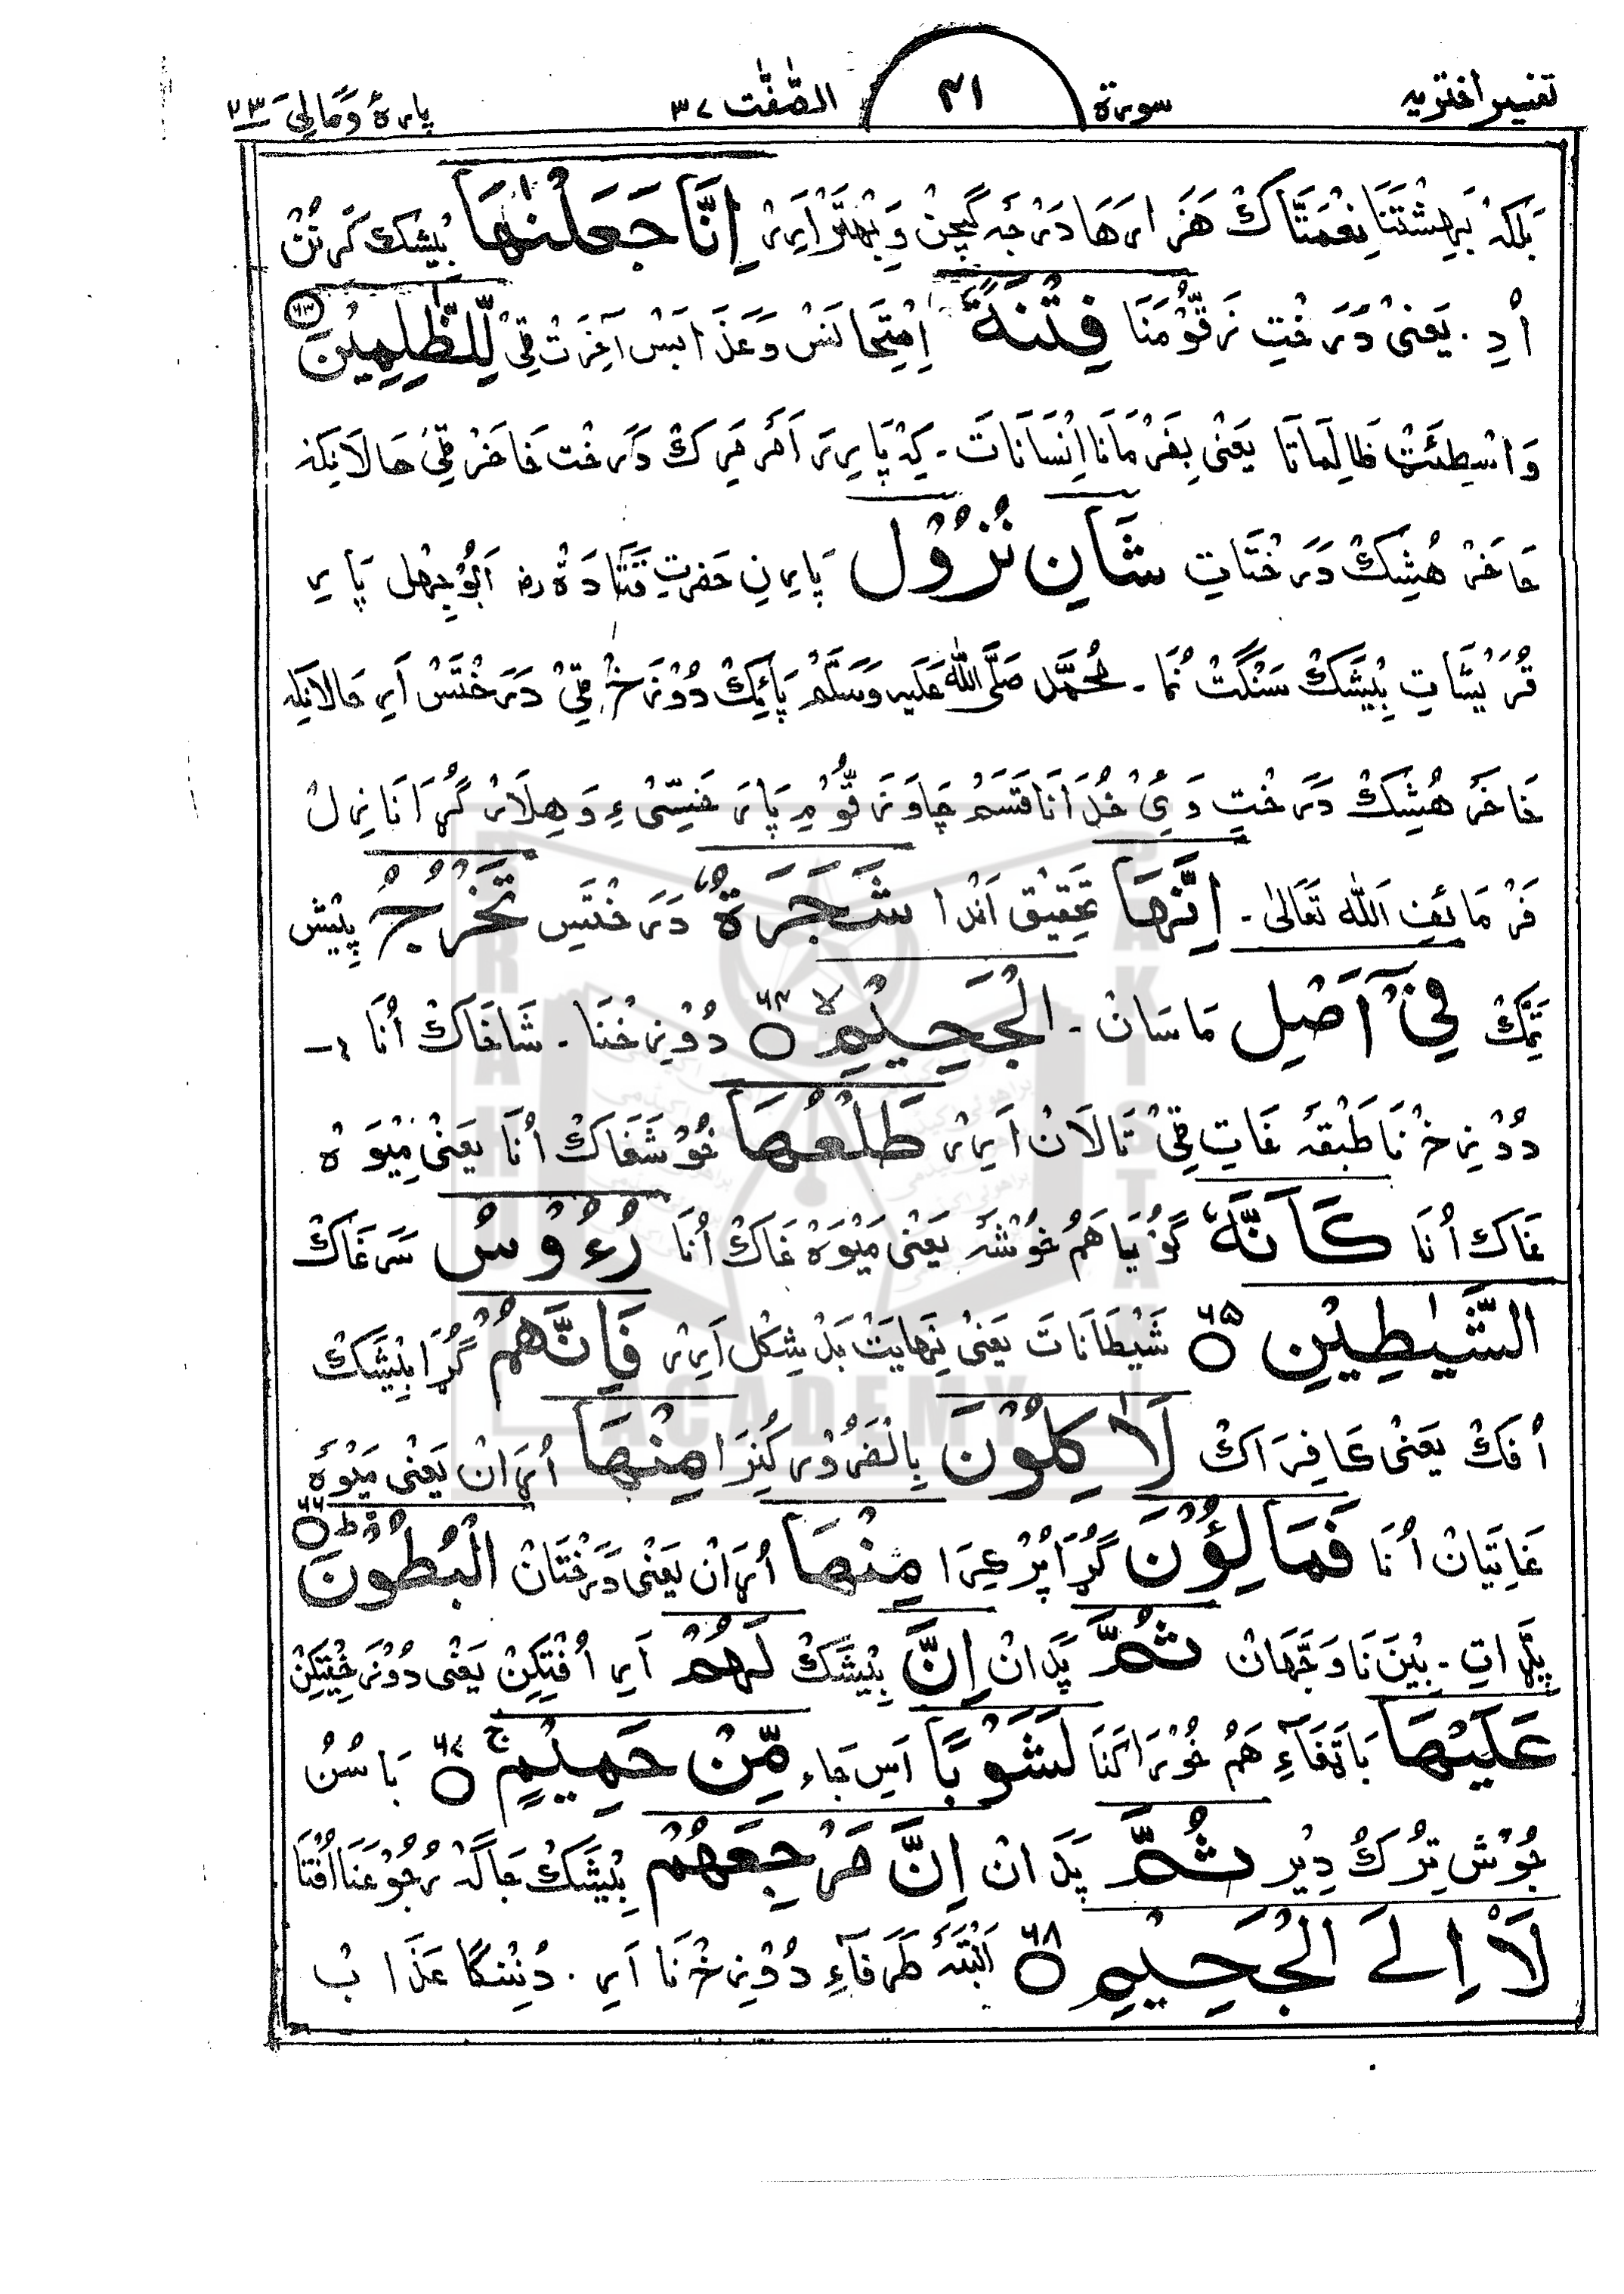 تفسیر اختریه سورة ۴۱ الصّٰفّٰت ۳۷ پارۀ وَمَالِیَ ۲۳
بَلکہ بَہِشتَنَا نِعْمَتَّاکْ ھَزَار ھَا دَرجَہ گِچِین وَ بہتَر اَیر اِنَّا جَعَلْنٰهَا بیشک کَرینُن
اُدِ. یَعنی دَرَختِ زَقُّومَنَا فِتْنَةً اِمْتِحَانَس وَ عَذَابَس آخِرَت ٹی لِّلظّٰلِمِیْنَ ۶۳
وَاسْطِئَٹ ظالِمَاتَا یَعنی بِفَرمَانَا اِنْسَانَاتَ۔ کِہ پَارِیرَ اَمَر مَرِکْ دَرَخت خَاخَر ٹی حَالانِکہ
خَاخَر ھُشِکْ دَرَختَاتِ شَانِ نُزُوْل پَارِینِ حَضرتِ قَتَادَہ رض اَبُوجہل پَارِ
قُرَیْشَاتِ بِیشَکْ سَنگَت نُمَا۔ مُحَمَّد صَلَّی اللہ عَلَیہِ وَسَلَّم پَائِکْ دُوْزَخ ٹی دَرَختَس اَیر حَالانِکہ
خَاخَر ھُشِکْ دَرَختِ وَ یْ خُدَانَا قَسَم چَاوَ زَقُّومِ پَارَ ھَنِیِّ ءِ وَ ھِلَار گُڑَا نَازِل
فَرمَائِف اَللہ تَعَالیٰ۔ اِنَّهَا تَحقِیق اَندَا شَجَرَةٌ دَرَختَسِ تَخْرُجُ پِیش
تَمِّکْ فِیْۤ اَصْلِ مَاسَان۔ الْجَحِیْمِ ۶۴ لا دُوْزِخَنَا۔ شَاخَاکْ اُنَا
دُوْزِخنَا طَبقَہ غَاتِ ٹی تَالَان اَیر طَلْعُهَا خُوْشَغَاکْ اُنَا یَعنی مِیْوَہ
غَاکْ اُنَا كَاَنَّهٗ گُوْیَا ھَم خُوْشَہ یَعنی مَیْوَہ غَاکْ اُنَا رُءُوْسُ سَرغَاکْ
الشَّیٰطِیْنِ ۶۵ شَیْطَانَاتَ یَعنی نِہَایَت بَد شِکل اَیر فَاِنَّهُمْ گُڑَا بِیشَکْ
اُفکْ یَعنی کَافِرَاکْ لَاٰكِلُوْنَ بِالضَرُور کُنِرَا مِنْهَا اُیران یَعنی مَیوَہ
غَاتِیَان اُنَا فَمَالِـُٔوْنَ گُڑَا پُر کِرَا مِنْهَا اُیران یَعنی دَرَختَان الْبُطُوْنَ ۶۶ ط
پِڈَاتِ۔ بِینَ نَا وَجَہان ثُمَّ پَدَان اِنَّ بِیشَکْ لَهُمْ اَیر اُفتِکِن یَعنی دُوْزَخِیتِکِن
عَلَیْهَا بَاتَغَاءِ ھَم خُوْرَاکنَا لَشَوْبًا اَسِ جَاءِ مِّنْ حَمِیْمٍ ۶۷ ج بَاسُن
جُوْش تِرُکْ دِیْر ثُمَّ پَدَان اِنَّ مَرْجِعَهُمْ بِیشَکْ جَاگَہ رُجُوْعنَا اُفتَا
لَاۡ اِلَی الْجَحِیْمِ ۶۸ اَلْبَتَہ طَرَفاءِ دُوْزِخنَا اَیر. دُنِنگَا عَذَاب
BRAHUI ACADEMY PAKISTAN